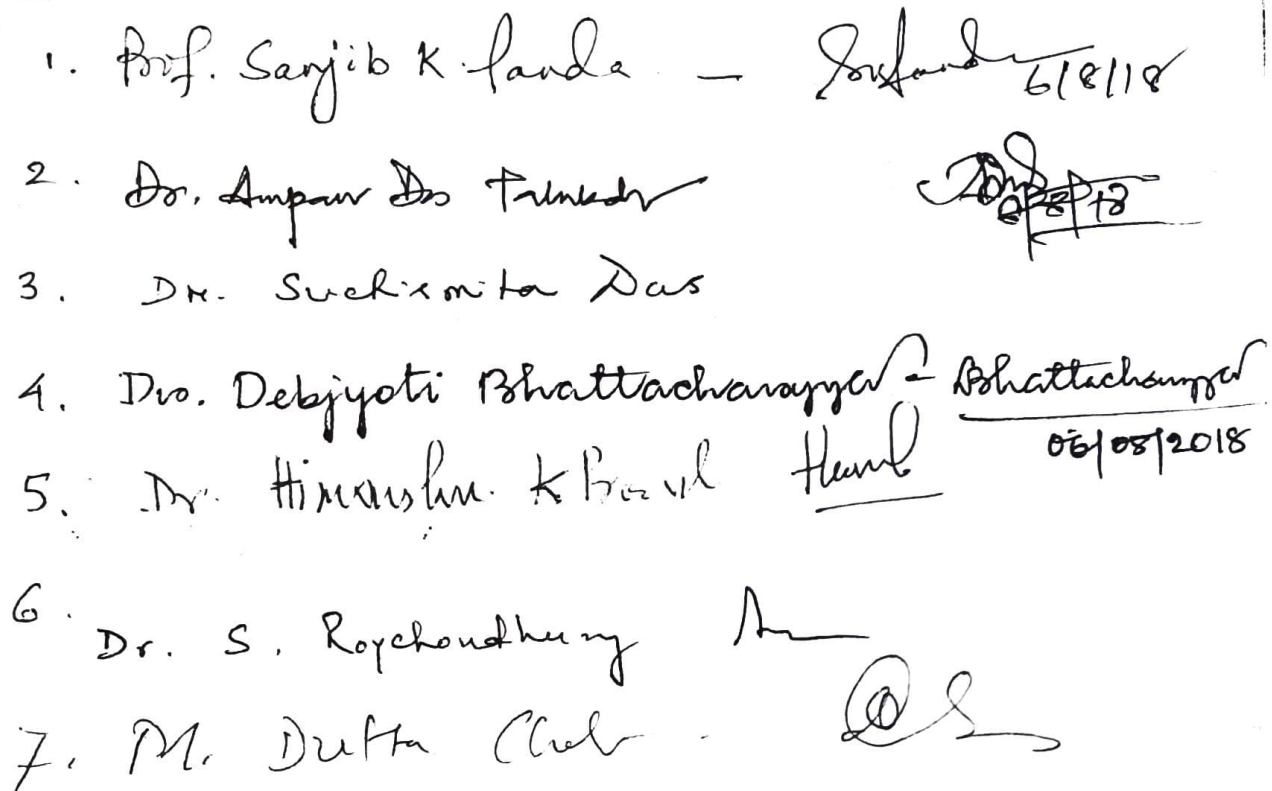 1. Prof. Sanjib K. Panda - 6/8/18
2. Dr. Anupam Das Talukdar
3. Dr. Suchismita Das
4. Dr. Debjyoti Bhattacharyya - Bhattacharyya
06/08/2018
5. Dr. Himanshu. K
6. Dr. S. Roychoudhury
7. M. Dutta